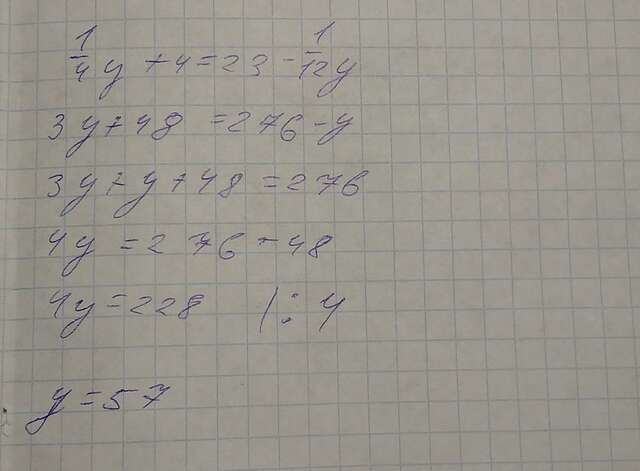 1/4 y + 4 = 23 - 1/12 y
3y + 48 = 276 - y
3y + y + 48 = 276
4y = 276 - 48
4y = 228 | : 4
y = 57